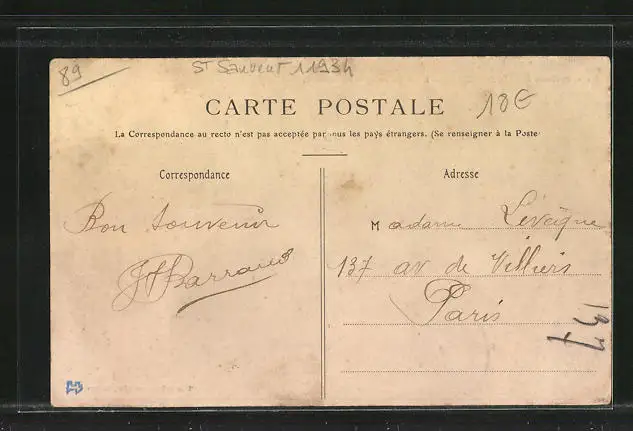 89
St Sauveur 11934
CARTE POSTALE
18€
La Correspondance au recto n'est pas acceptée par ous les pays étrangers. (Se renseigner à la Poste
Correspondance
Bon souvenir
Barraud
Adresse
Madame Levêque
137 av de Villiers
Paris
197